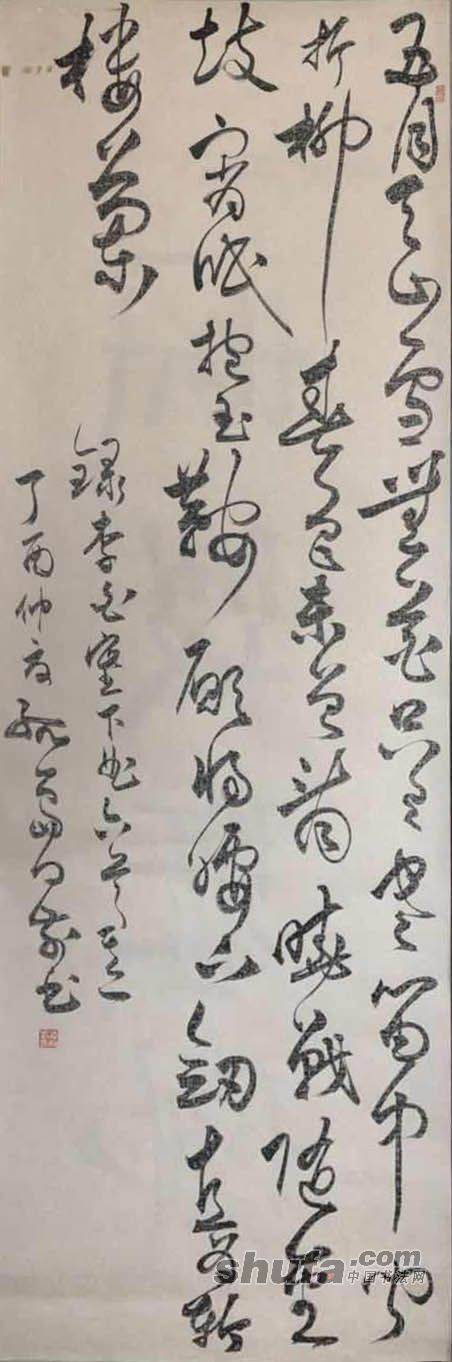 五月天山雪無花只有寒笛中聞
折柳春色未曾看曉戰隨金
鼓宵眠抱玉鞍願將腰下劍直為斬
樓蘭
錄李白塞下曲六首之一
丁酉仲
書
shufa.com
中国书法网